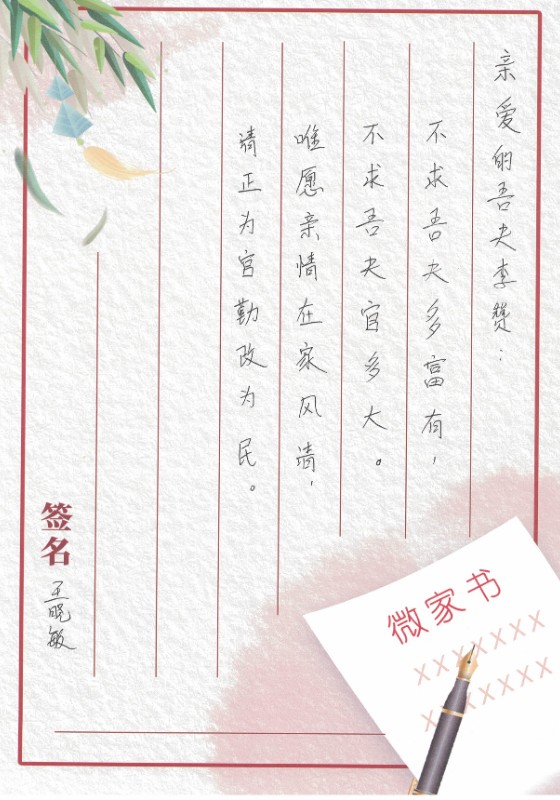 亲爱的吾夫李赞：
不求吾夫多富有，
不求吾夫官多大。
唯愿亲情在家风清，
清正为官勤政为民。
签名
王晓敏
微家书
XXXXXXX
XXXXXXX